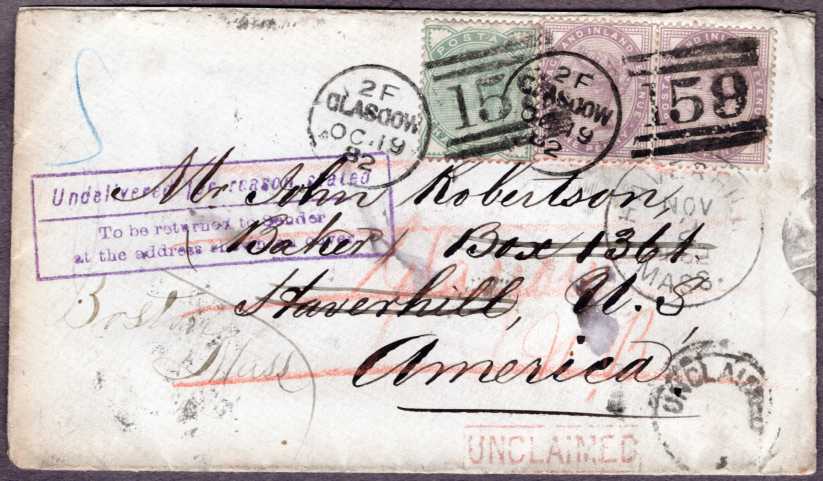 POSTAGE
AND INLAND REVENUE
2F
GLASGOW
OC 19
82
159
2F
GLASGOW
OC 19
82
159
Undelivered for reason stated
To be returned to Sender
at the address
Mr John Robertson,
Baker, Box 1361
Haverhill, U.S,
America
Boston
Mass
NOV
MASS.
UNCLAIMED
UNCLAIMED